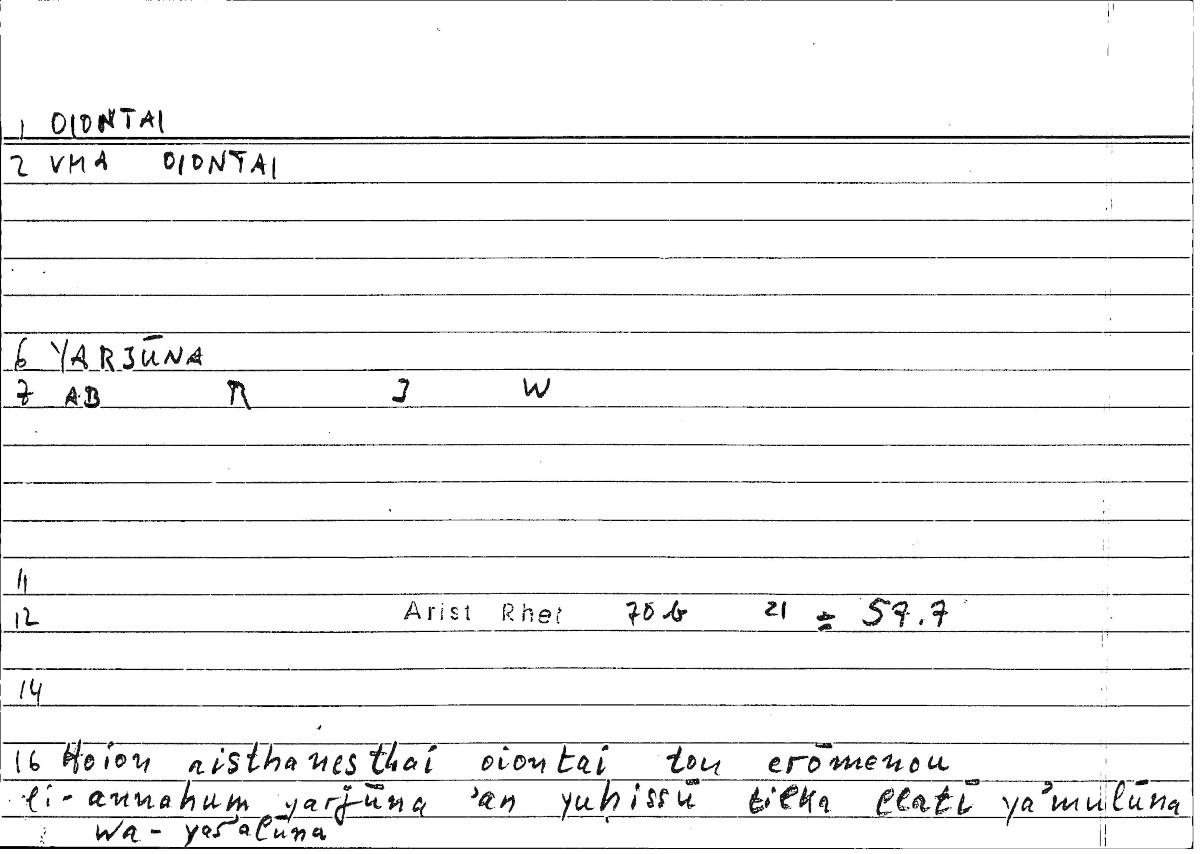 1 OIONTAI
2 VMA OIONTAI
6 YARJŪNA
7 AB R J W
11
12 Arist Rhet 70b 21 ≑ 57.7
14
16 Hoion aisthanesthai oiontai tou erōmenou
li-annahum yarǧūna ʾan yuḥissū tilka llatī yaʾmulūna
wa-yasʾalūna